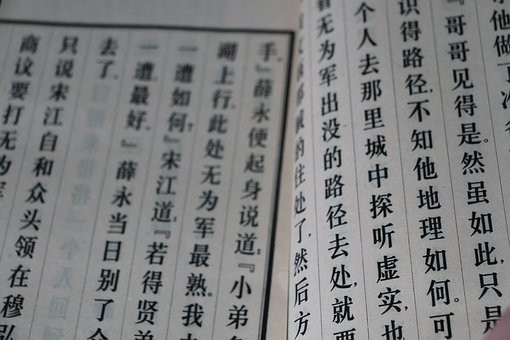 他做
『哥哥见得是。然虽如此,只是
识得路径,不知他地理如何。可
个人去那里城中探听虚实,也
看无为军出没的路径去处,就要
贼的住处了,然后方
手。』薛永便起身说道:『小弟
湖上行,此处无为军最熟。我
一遭如何?』宋江道:『若得贤弟
一遭最好。』薛永当日别了
去了。
只说宋江自和众头领在穆弘
商议要打无为军